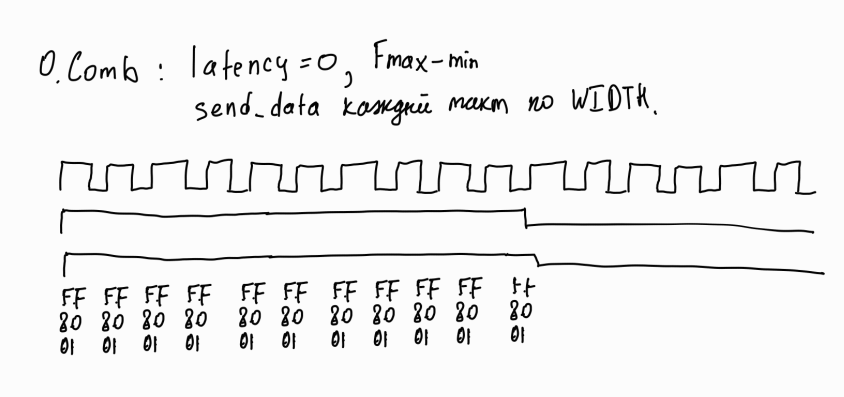 0. Comb : latency = 0, Fmax-min
send_data каждый такт по WIDTH.
FF FF FF FF FF FF FF FF FF FF FF
80 80 80 80 80 80 80 80 80 80 80
01 01 01 01 01 01 01 01 01 01 01